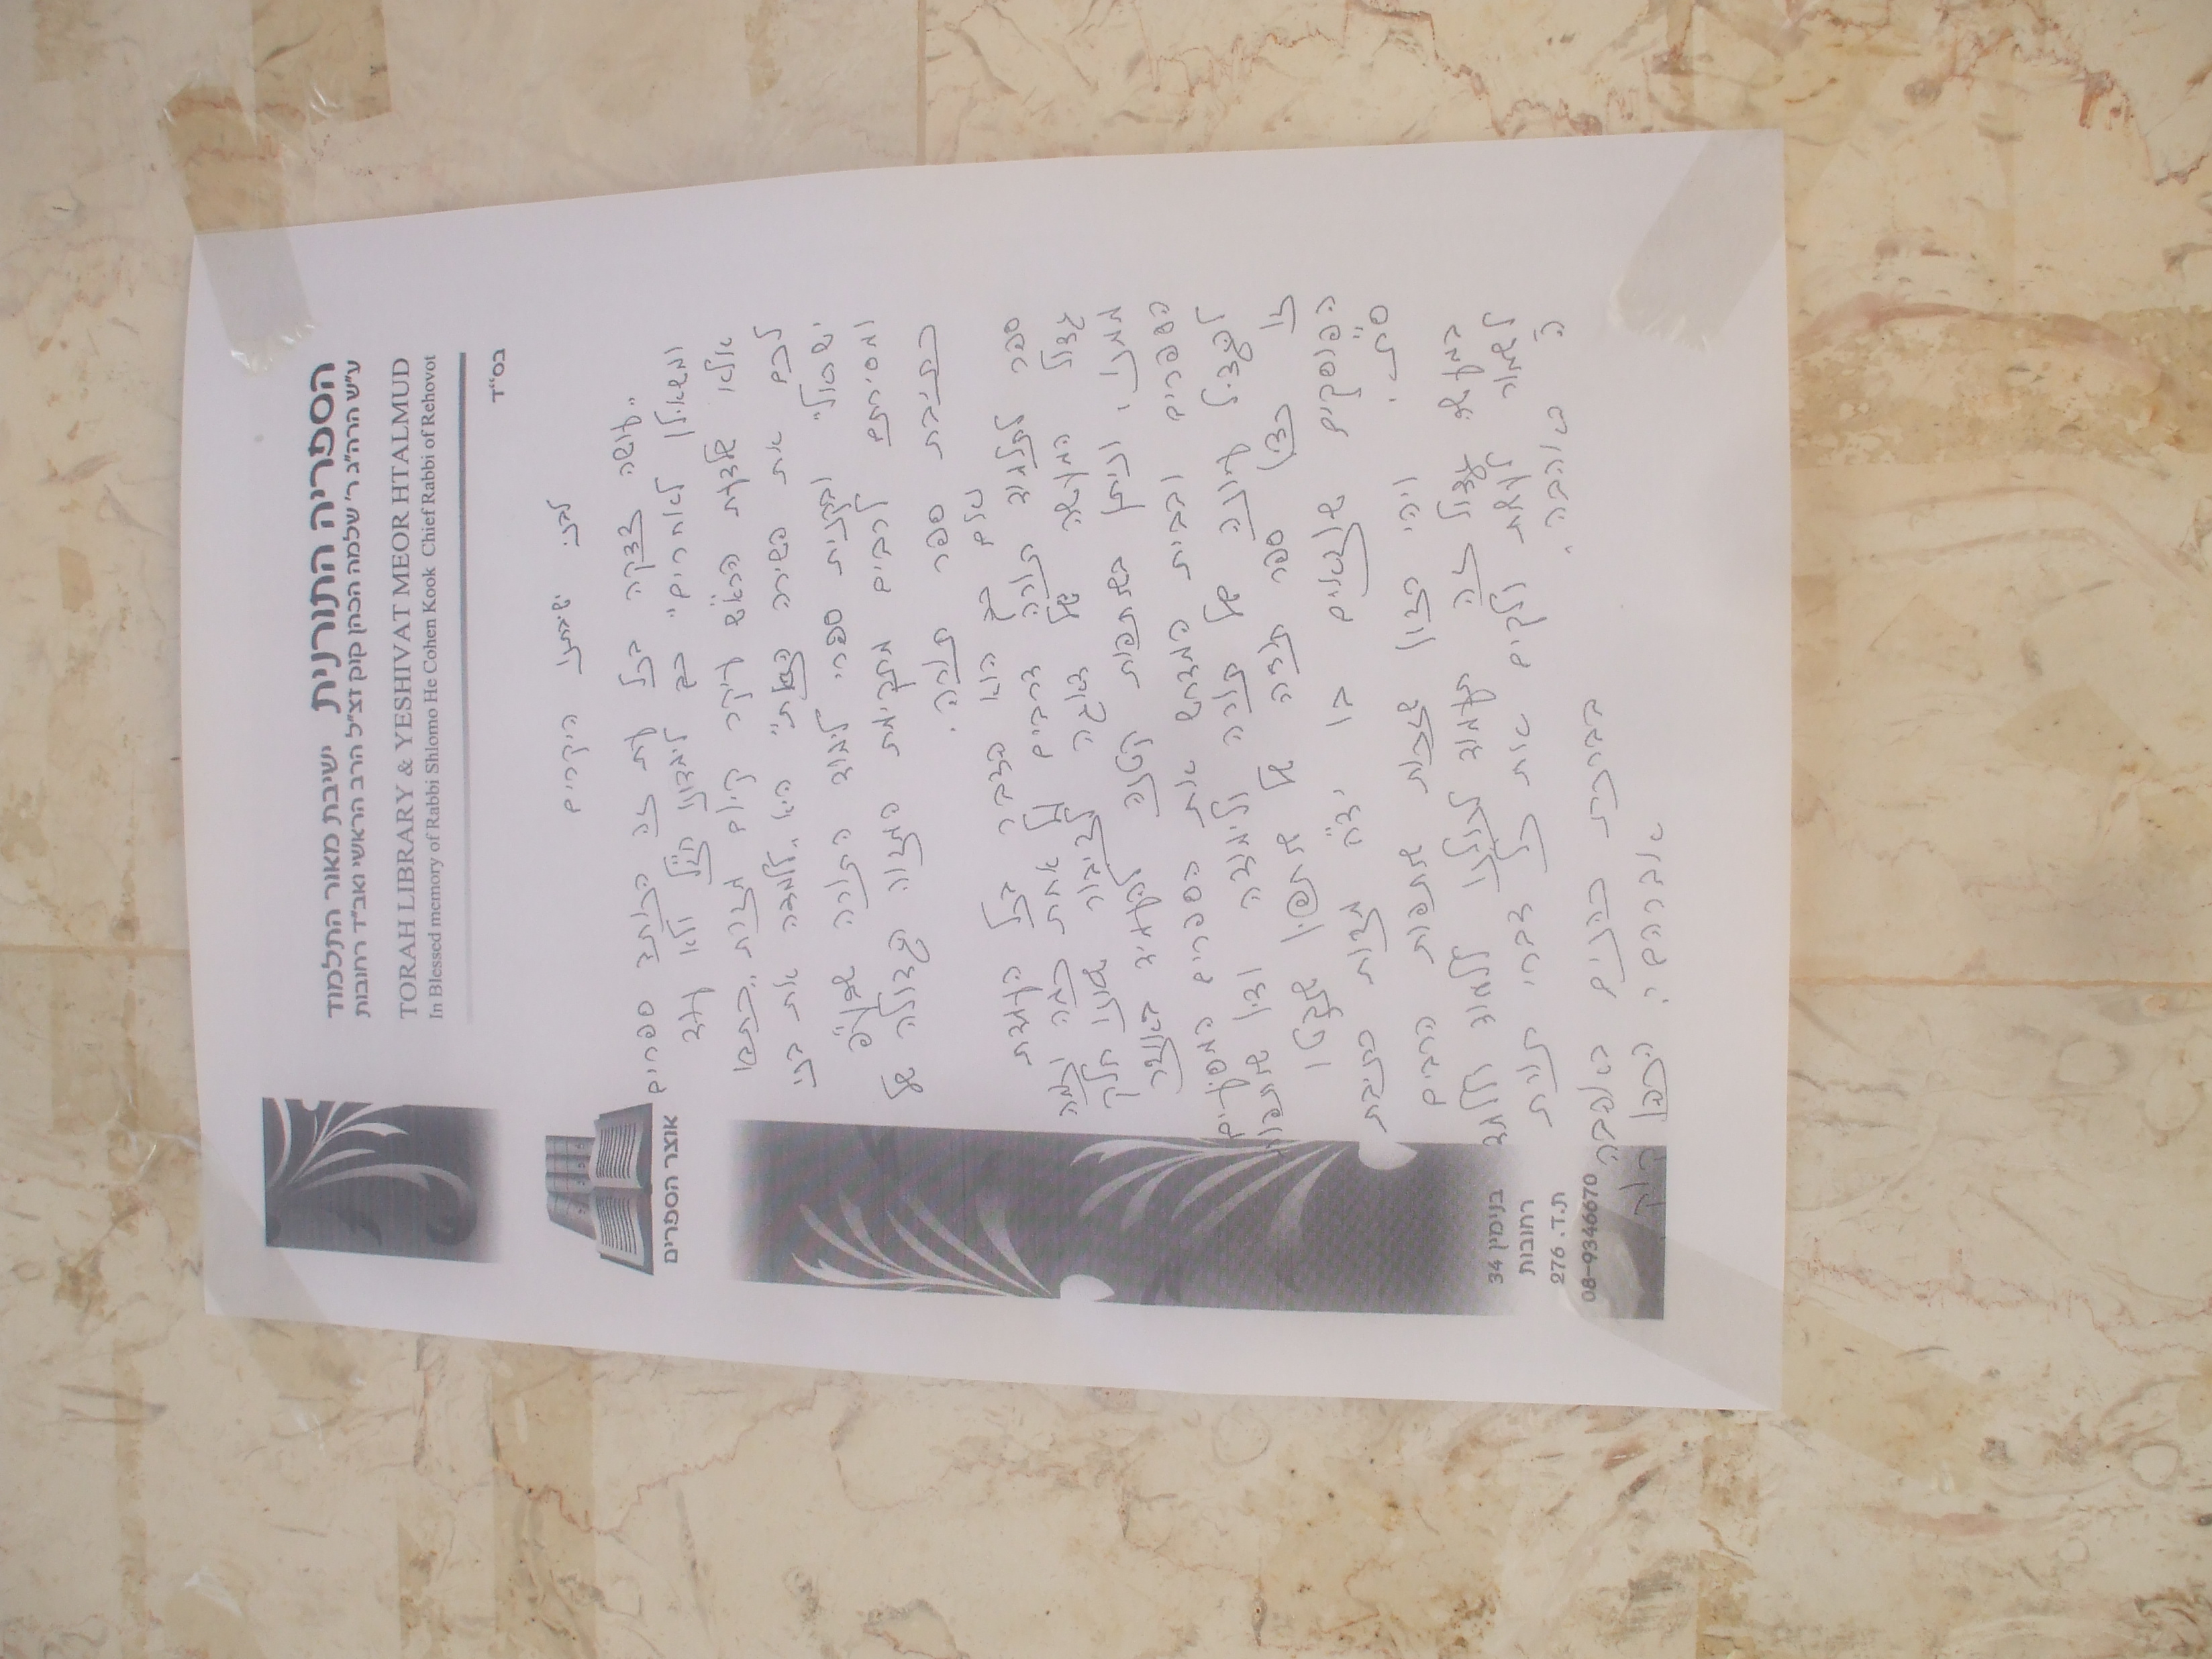 הספריה התורנית ישיבת מאור התלמוד
ע"ש הרה"ג ר' שלמה הכהן קוק זצ"ל הרב הראשי ואב"ד רחובות
TORAH LIBRARY & YESHIVAT MEOR HTALMUD
In Blessed memory of Rabbi Shlomo He Cohen Kook Chief Rabbi of Rehovot
בס"ד
אוצר הספרים
לבני ישיבתנו היקרים
"עושה צדקה בכל עת זה הכותב ספרים
ומשאילן לאחרים" כך לימדונו חז"ל ולא עוד
אלא שלדעת הרא"ש עיקר קיום מצות "כתבו
לכם את השירה הזאת" היא "ללמדה את בני
ישראל" ובקנית ספרי לימוד התורה שבע"פ
ומסירתם לרבים מתקימת המצוה הגדולה של
כתיבת ספר תורה.
אם כך הוא הדבר בכל העמדת
ספר לתלמוד תורה דרבים על אחת כמה וכמה
גדול המעשה של דאגה לציבור שאנו חלק
ממנו, וניתן בשותפות קטנה להעמיד באוצר
הספרים ובבית המדרש את הספרים המסיעים
להגדיל עיונה של תורה ולימודה ודין שותפות
זו כדין ספר תורה של שותפין שנקטו
הפוסקים שיוצאים בו יד"ח מצות כתיבת
ס"ת. ויהי רצון שזכות שותפות הרבים
במעשה גדול זה תעמוד לכולנו ללמוד וללמד
לשמור לעשות ולקים את כל דברי תורת
ה' באהבה.
בברכת כהנים באהבה
אברהם י. הכהן קוק
בנימין 34
רחובות
ת.ד. 276
08-9346670